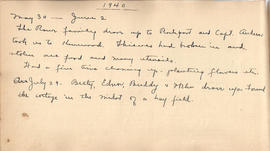 1940
May 30 — June 2
The Rowe family drove up to Rockport and Capt.
took us to Kenwood. Thieves had broken in and
stolen our food and many utensils.
Had a fine time cleaning up, planting flowers etc.
July 29. Betty, Edwin, Buddy & Mother drove up. Found
the cottage in the midst of a hay field.